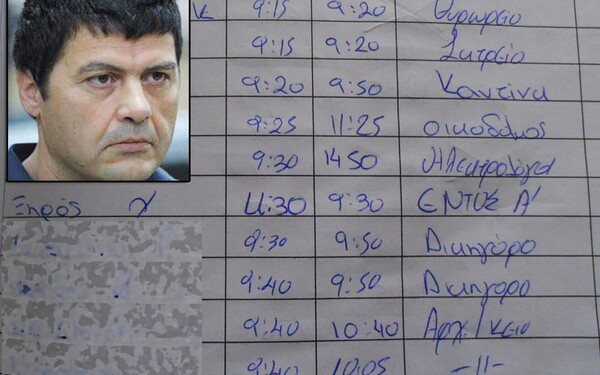 κ 9:15 9:20 Θυρωρείο
9:15 9:20 Ιατρείο
9:20 9:50 Καντίνα
9:25 11:25 οικοδόμος
9:30 14 50 Ηλεκτρολόγοι
Ξηρός 4:30 9:30 ΕΝΤΟΣ Α'
9:30 9:50 Δικηγόρο
9:40 9:50 Δικηγόρο
9:40 10:40 Αρχ/κειο
9:40 10:05 -11-